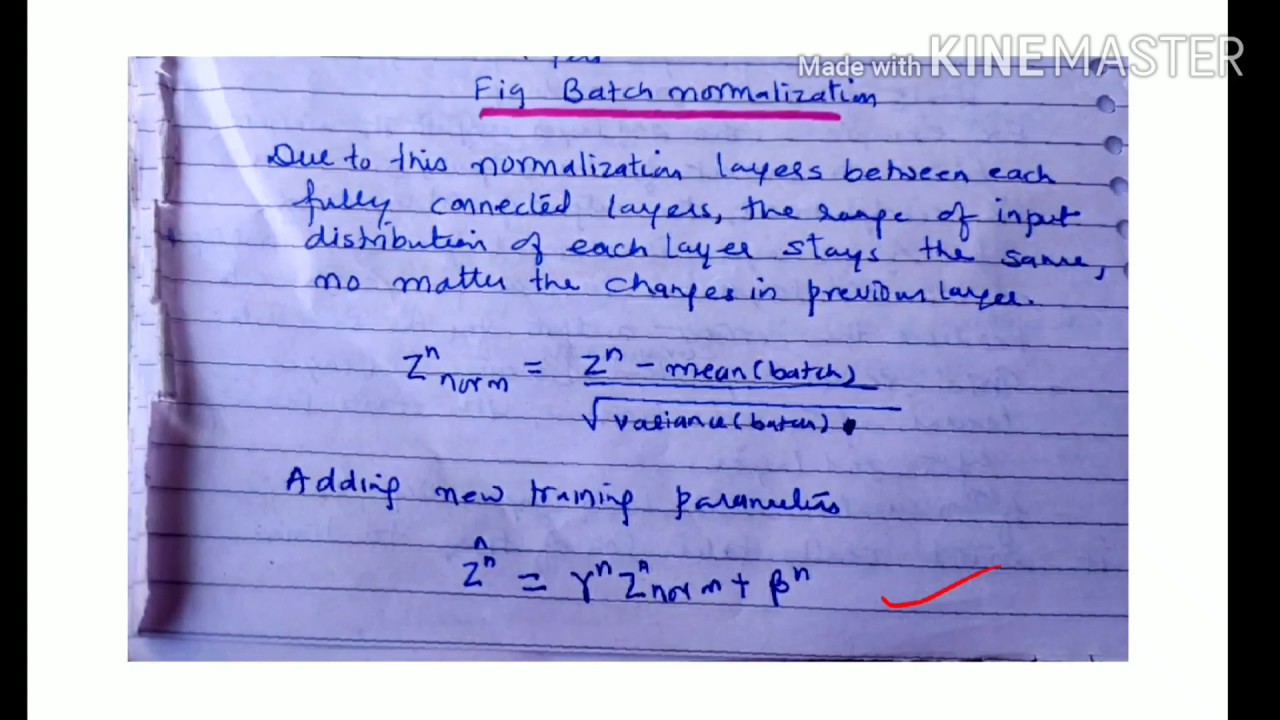 Made with KINEMASTER
Fig Batch normalization
Due to this normalization layers between each
fully connected layers, the range of input
distribution of each layer stays the same,
no matter the changes in previous layer.
Z^n_norm = (Z^n - mean(batch)) / √variance(batch)
Adding new training parameters
Ẑ^n = γ^n Z^n_norm + β^n